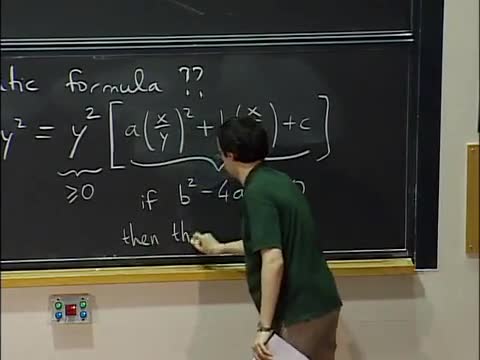 tic formula ??
y² = y² [ a(x/y)² + b(x/y) + c ]
≥0
if b² - 4a 0
then th